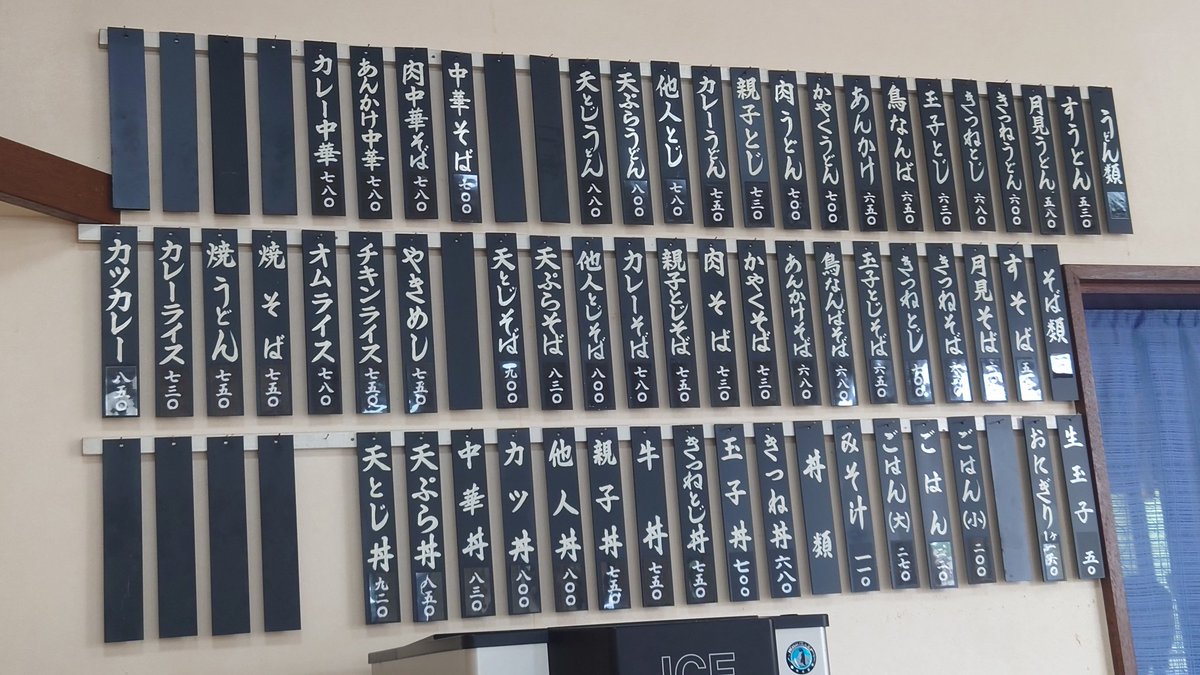 うどん類
すうどん 五三〇
月見うどん 五八〇
きつねうどん 六〇〇
きつねとじ 六八〇
玉子とじ 六三〇
鳥なんば 六五〇
あんかけ 六五〇
かやくうどん 七〇〇
肉うどん 七〇〇
親子とじ 七三〇
カレーうどん 七五〇
他人とじ 七八〇
天ぷらうどん 八〇〇
天とじうどん 八八〇
中華そば 七〇〇
肉中華そば 七八〇
あんかけ中華 七八〇
カレー中華 七八〇
そば類
すそば
月見そば
きつねそば
きつねとじ 七〇〇
玉子とじそば 六五〇
鳥なんばそば 六八〇
あんかけそば 六八〇
かやくそば 七三〇
肉そば 七三〇
親子とじそば 七五〇
カレーそば 七八〇
他人とじそば 八〇〇
天ぷらそば 八三〇
天とじそば 九〇〇
やきめし 七五〇
チキンライス 七五〇
オムライス 七八〇
焼そば 七五〇
焼うどん 七五〇
カレーライス 七三〇
カツカレー 八五〇
生玉子 五〇
おにぎり
ごはん(小) 二〇〇
ごはん
ごはん(大) 二七〇
みそ汁 一一〇
丼類
きつね丼 六八〇
玉子丼 七〇〇
きつねとじ丼 七五〇
牛丼 七五〇
親子丼 七五〇
他人丼 八〇〇
カツ丼 八〇〇
中華丼 八三〇
天ぷら丼 八五〇
天とじ丼 九二〇
ICE